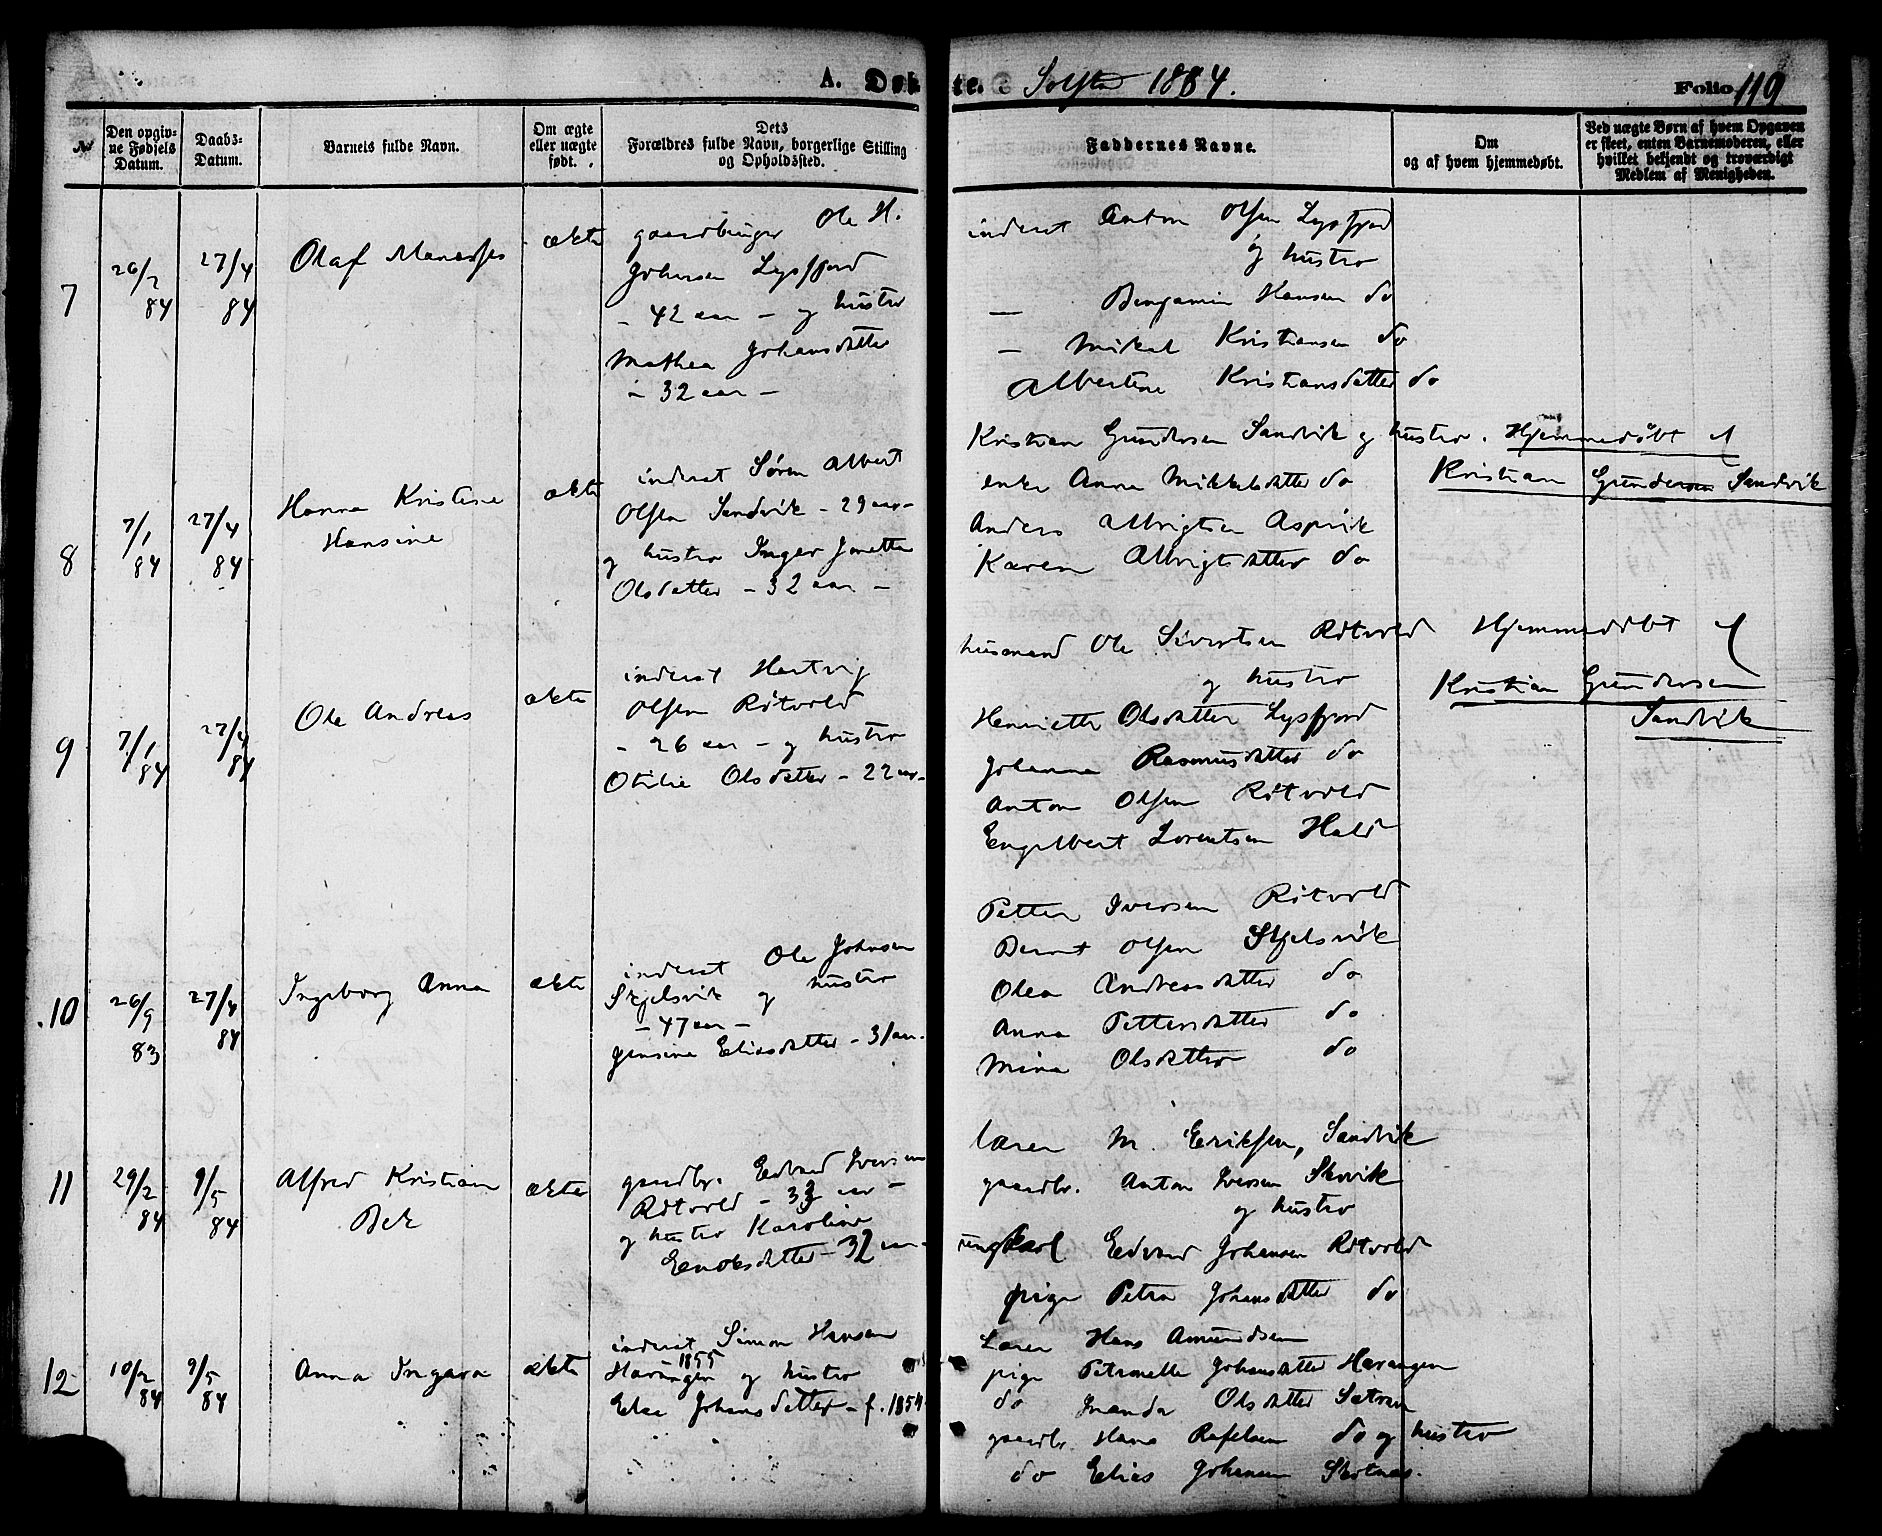 A. Døbte. Solfta 1884. Folio 119
№
Den opgiv-
ne Fødsels
Datum.
Daabs-
Datum.
Barnets fulde Navn.
Om ægte
eller uægte
født.
Dets
Forældres fulde Navn, borgerlige Stilling
og Opholdssted.
Faddernes Navne.
Om
og af hvem hjemmedøbt.
Ved uægte Børn af hvem Opgaven
er skeet, enten Barnemoderen, eller
hvilket bekjendt og troværdigt
Medlem af Menigheden.
7
26/2 84
27/4 84
Olaf Manasses
ækte
gaardbruger Ole H.
Johnsen Lysfjord
- 42 aar - og hustro
Mathea Johansdatter
- 32 aar -
inderst Anton Olsen Lysfjord
og hustro
— Benjamin Hansen do
— Mikal Kristiansen do
Albertine Kristiansdatter do
8
7/1 84
27/4 84
Hanna Kristine
Hansine
ækte
inderst Søren Albert
Olsen Sandvik - 29 aar -
og hustro Inger Jonetta
Olsdatter - 32 aar -
Kristian Gundersen Sandvik og hustro.
enke Anna Mikkelsdatter do
Anders Albrigtsen Aspvik
Karen Albrigtsdatter do
Hjemmedøbt af
Kristian Gundersen Sandvik
9
7/1 84
27/4 84
Ole Andreas
ækte
inderst Hartvig
Olsen Røtvold
- 26 aar - og hustro
Otilie Olsdatter - 22 aar -
husmand Ole Sivertsen Røtvold
og hustro
Henriette Olsdatter Lysfjord
Johanna Rasmusdatter do
Anton Olsen Røtvold
Engelbert Lorentsen Hald
Hjemmedøbt af
Kristian Gundersen
Sandvik
10
26/9 83
27/4 84
Ingeborg Anna
ækte
inderst Ole Johnsen
Skjelsvik og hustro
- 47 aar -
Jensine Eliasdatter - 31 aar.
Petter Iversen Røtvold
Bernt Olsen Skjelsvik
Olea Andreasdatter do
Anna Pettersdatter do
Mina Olsdatter do
11
29/2 84
9/5 84
Alfred Kristian
Bek
ækte
gaardbr. Edvard Iversen
Røtvold - 33 aar -
og hustro Karoline
Enoksdatter - 32 aar -
Lærer M. Eriksen, Sandvik
gaardbr. Anton Iversen Skovik
og hustro
ungkarl Edvard Johansen Røtvold
pige Petra Johansdatter do
12
10/2 84
9/5 84
Anna Ingara
ækte
inderst Simon Hansen
1855
Havangen og hustro
Elsa Johansdatter - f. 1854
Lærer Hans Amundsen
pige Petronelle Johansdatter Havangen
do Olsdatter Sætran
gaardbr. Hans Rafelsen do og hustro
do Elias Johansen Skotnes.